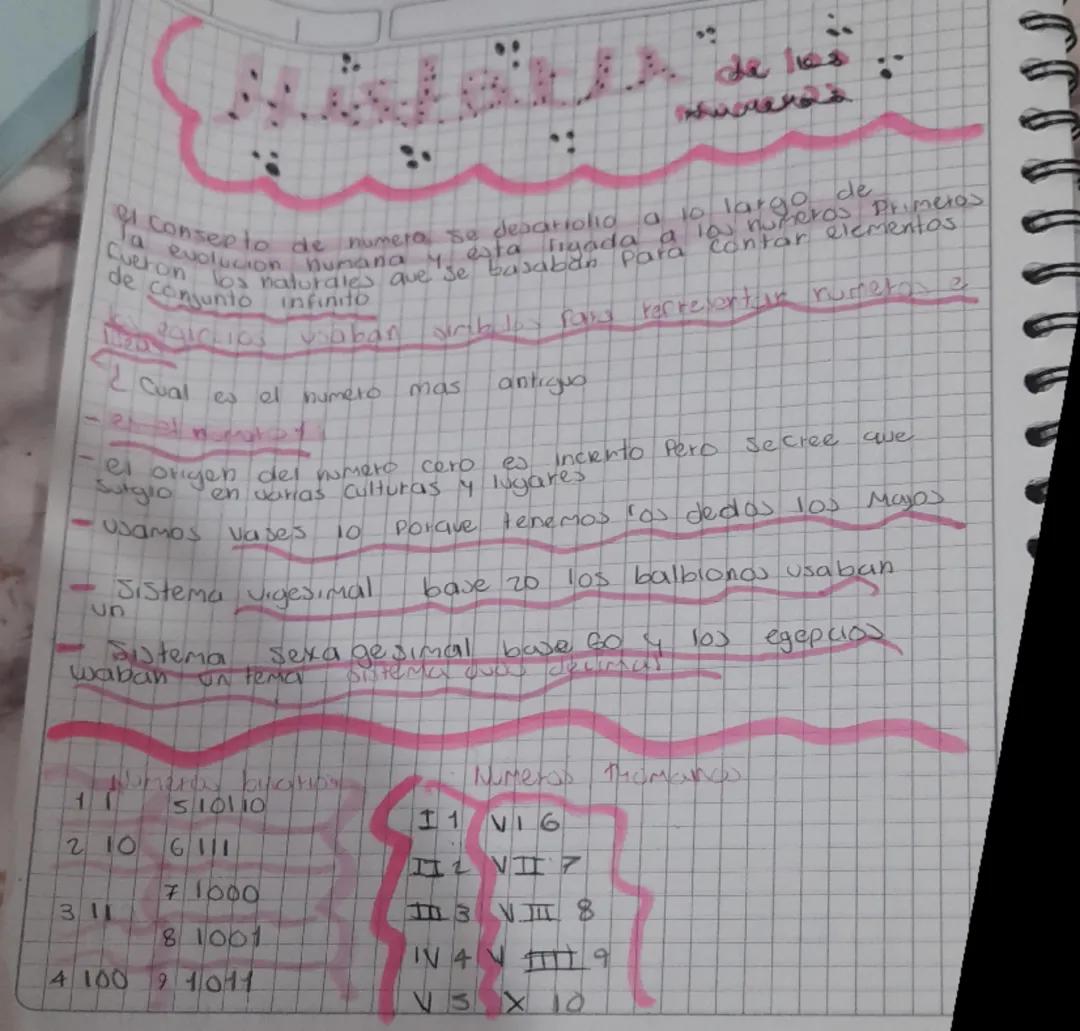 Historia de los
numeros
el consepto de numero se desarrollo a lo largo de
la evolucion humana y esta ligada a los numeros Primeros
fueron los naturales que se basaban para contar elementos
de conjunto infinito
egipcios usaban simbolos para representar numeros e
ideas
¿ Cual es el numero mas antiguo
- es el numero 1
- el origen del numero cero es incierto Pero se cree que
surgio en varias culturas y lugares
- usamos vases 10 Porque tenemos los dedos los Mayas
- Sistema vigesimal base 20 los balbionas usaban
un
- Sistema sexagesimal base 60 y los egepcios
usaban un tema sistema duos decimal
Numeros binarios
1 1 5 10110
2 10 6 111
7 1000
3 11
8 1001
4 100 9 1011
Numeros Rromanos
I 1 VI 6
II 2 VII 7
III 3 VIII 8
IV 4 V IIII 9
V 5 X 10